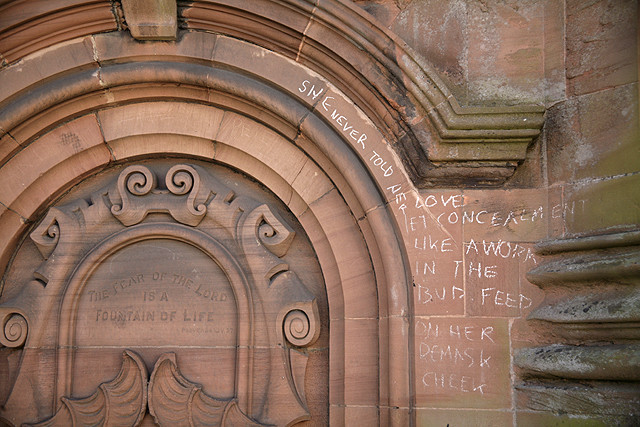 THE FEAR OF THE LORD
IS A
FOUNTAIN OF LIFE
SHE NEVER TOLD HER
LOVE
ET CONCEALMENT
LIKE A WORM
IN THE
BUD FEED
ON HER
DEMASK
CHEEK